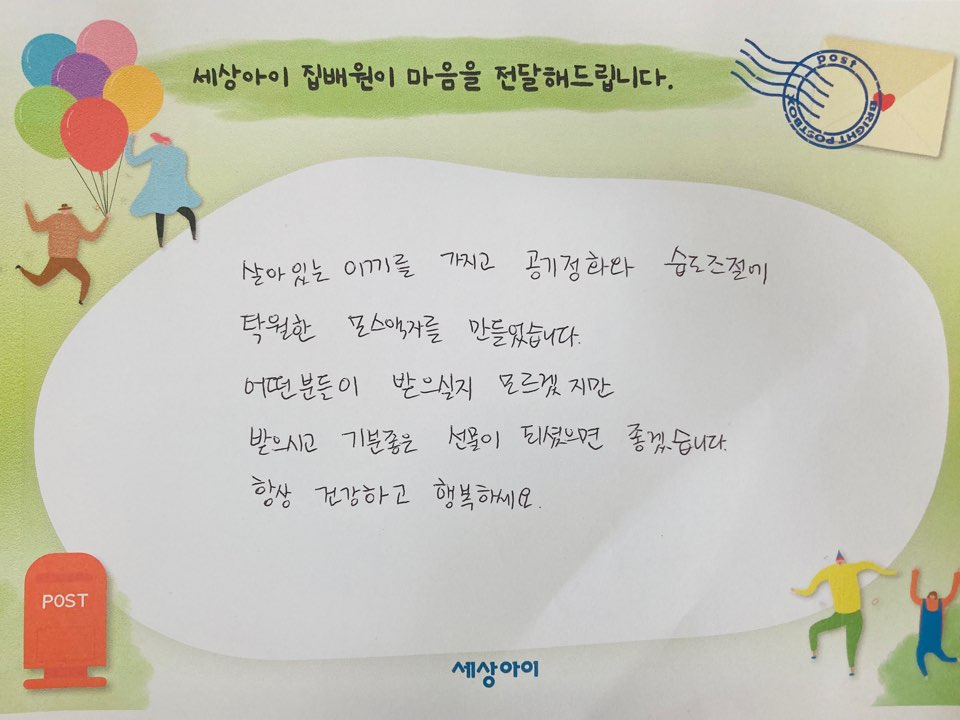 세상아이 집배원이 마음을 전달해드립니다.
post
BRIGHT POSTBOX
살아있는 이끼를 가지고 공기정화와 습도조절에
탁월한 모스액자를 만들었습니다.
어떤분들이 받으실지 모르겠지만
받으시고 기분좋은 선물이 되셨으면 좋겠습니다.
항상 건강하고 행복하세요.
POST
세상아이